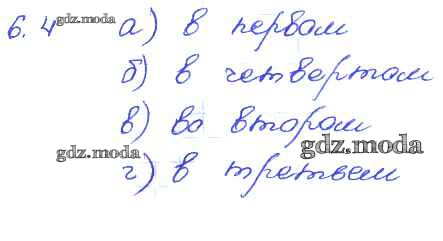 6.4 gdz.moda а) в первом
б) в четвертом
в) во втором
gdz.moda gdz.moda
г) в третьем